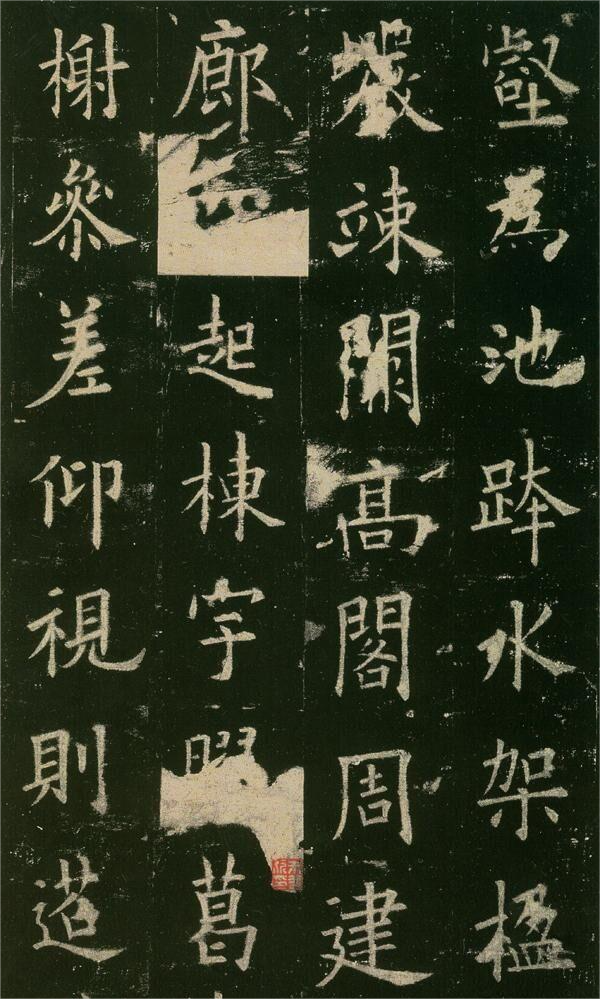 壑爲池跨水架楹
巖竦闕高閣周建
廊起棟宇葛
榭參差仰視則迢